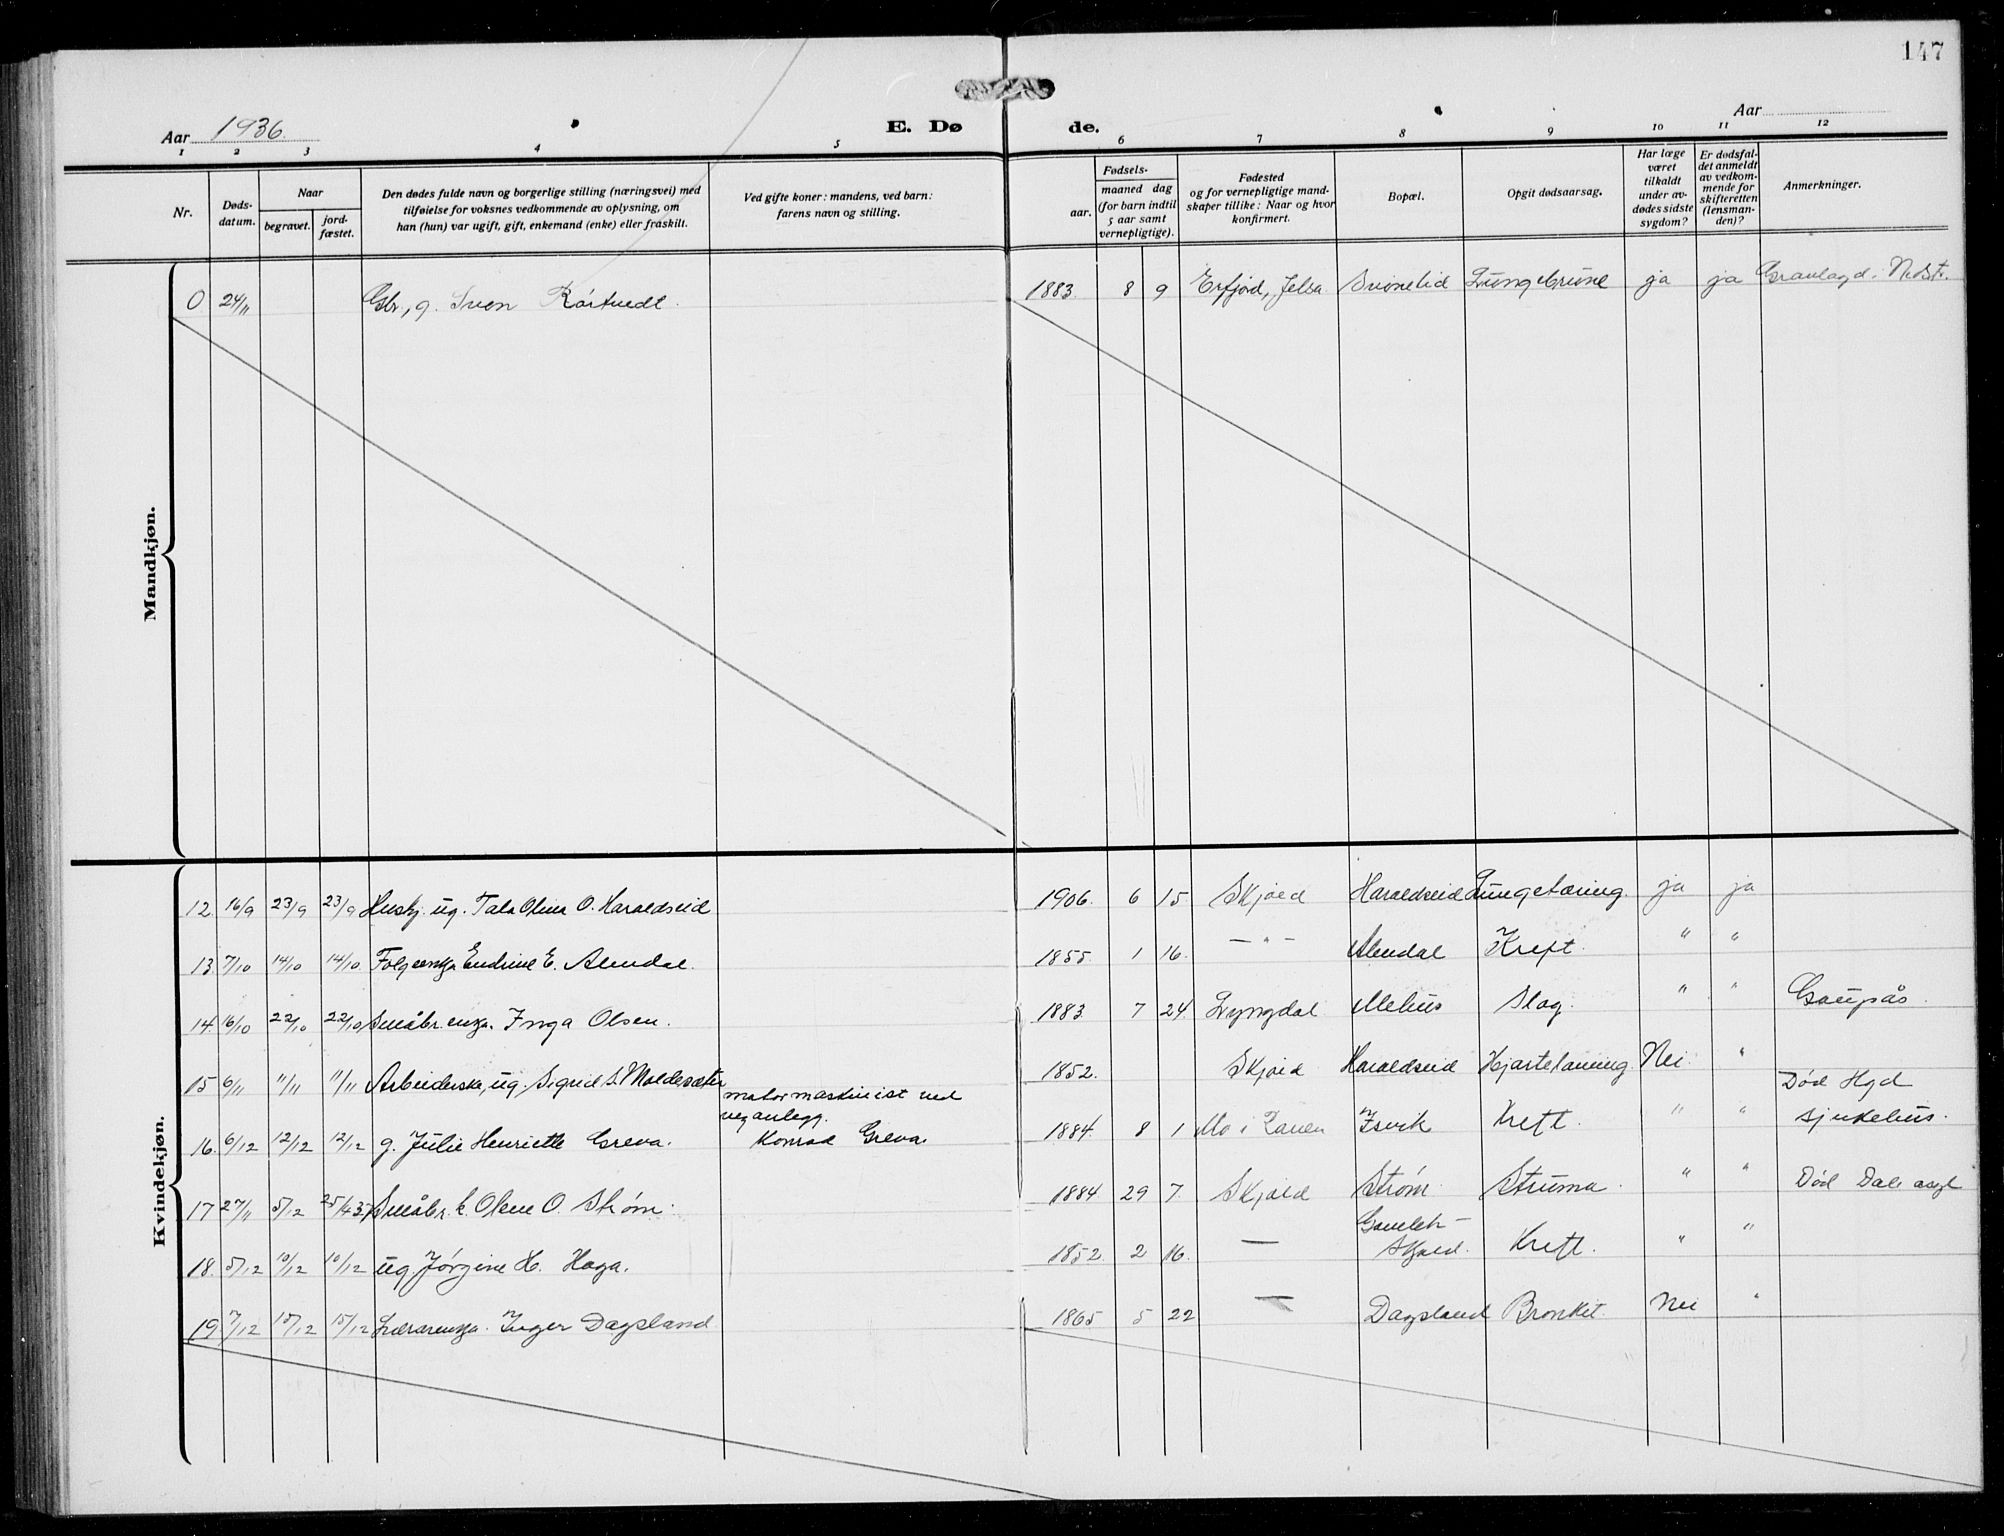 147
Aar 1936.
E. Døde.
Aar
1 2 3 4 5 6 7 8 9 10 11 12
Nr.
Døds-
datum.
Naar
begravet.
jord-
fæstet.
Den dødes fulde navn og borgerlige stilling (næringsvei) med
tilføielse for voksnes vedkommende av oplysning, om
han (hun) var ugift, gift, enkemand (enke) eller fraskilt.
Ved gifte koner: mandens, ved barn:
farens navn og stilling.
Fødsels-
aar.
maaned dag
(for barn indtil
5 aar samt
vernepligtige).
Fødested
og for vernepligtige mand-
skaper tillike: Naar og hvor
konfirmert.
Bopæl.
Opgit dødsaarsag.
Har læge
været
tilkaldt
under av-
dødes sidste
sygdom?
Er dødsfal-
det anmeldt
av vedkom-
mende for
skifteretten
(lensman-
den)?
Anmerkninger.
Mandkjøn.
0 24/11 Gbr, g. Sven 1883. 8 9 Erfjord, Jelsa ja ja
Kvindekjøn.
12. 16/9 23/9 23/9 Hushj. ug. Tala Olina O. Haraldseid 1906. 6 15 Skjold Haraldseid Lungetæring. ja ja
13 7/10 14/10 14/10. Folgeenkja Endrine E. Alendal. 1855. 1 16. — " — Alendal Kreft. " "
14. 16/10 22/10 22/10 Småbr. enkja. Inga Olsen. 1883. 7 24. Lyngdal Mehus Slag. " " Gaupås.
15 6/11 11/11 11/11 Arbeiderska, ug. Sigrid S. Moldesæter 1852. Skjold Haraldseid Hjartelaming Nei "
motormaskinist ved
veganlegg.
Død Hgd
sjukehus.
16. 6/12 12/12 12/12 g. Julie Henriette Greva. Konrad Greva. 1884. 8 1 Mo i Ranen Isvik Kreft. " "
17 27/11 5/12 Småbr. k. Olene O. Strøm. 1884 29 7. Skjold Strøm. Struma. " " Død Dale asyl
Gamleh-
18. 5/12 10/12 10/12 ug. Jørgine H. Haga. 1852. 2 16. — Skjold. Kreft. " "
19 7/12 15/12 15/12 Lærarenkja. Inger Dagsland 1865 5 22 — Dagsland Bronkit. Nei "